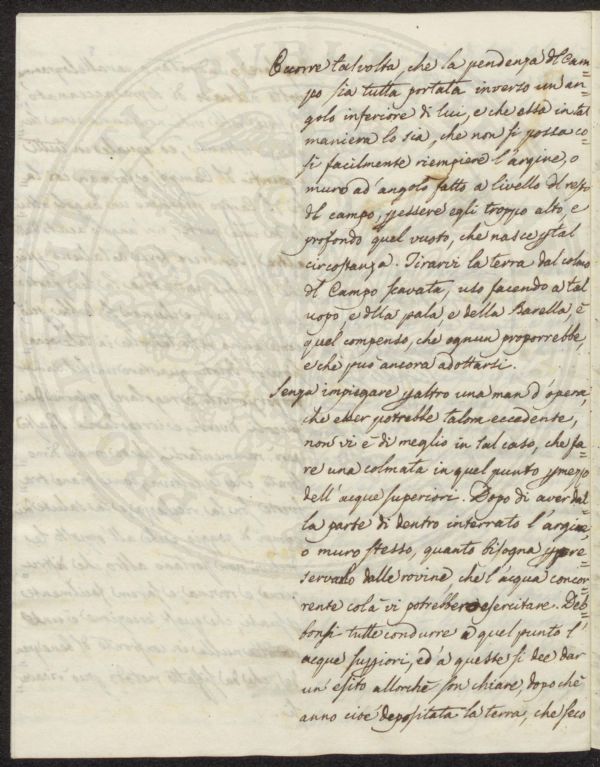 Occorre talvolta, che la pendenza dl Cam=
po sia tutta portata inverso un an=
golo inferiore di lui, e che essa in tal
maniera lo sia, che non si possa co=
si facilmente riempiere l'argine, o
muro ad'angolo fatto a livello dl resto
dl campo, p essere egli troppo alto, e
profondo quel vuoto, che nasce p tal
circostanza. Tirarvi la terra dal colmo
dl Campo scavata, uso facendo a tal
uopo, e dlla pala, e della Barella, è
quel compenso, che ognun proporrebbe,
e che può ancora adottarsi.
Senza impiegare p altro una man d'opera,
che esser potrebbe talora eccedente,
non vi è di meglio in tal caso, che fa=
re una colmata in quel punto p mezzo
dell'acque superiori. Dopo di aver dal=
la parte di dentro interrato l'argine,
o muro stesso, quanto bisogna p pre=
servarlo dalle rovine, che l'acqua concor=
rente colà vi potrebbero esercitare. Deb=
bonsi tutte condurre a quel punto l'
acque suppiori, ed a queste si dee dar
un'esito allorchè son chiare, dopo chè
anno cioè depositata la terra, che seco